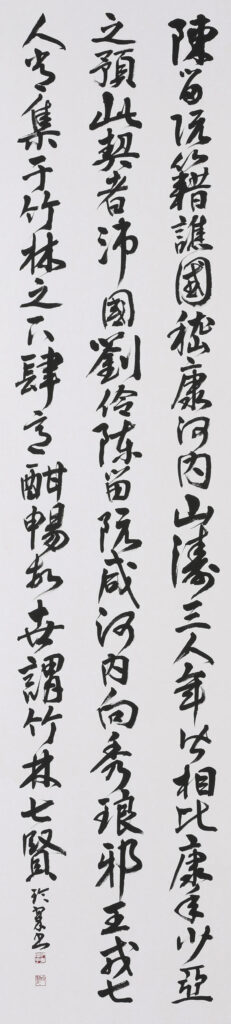 陳留阮籍譙國嵇康河內山濤三人年皆相比康年少亞
之預此契者沛國劉伶陳留阮咸河內向秀琅邪王戎七
人常集于竹林之下肆意酣暢故世謂竹林七賢